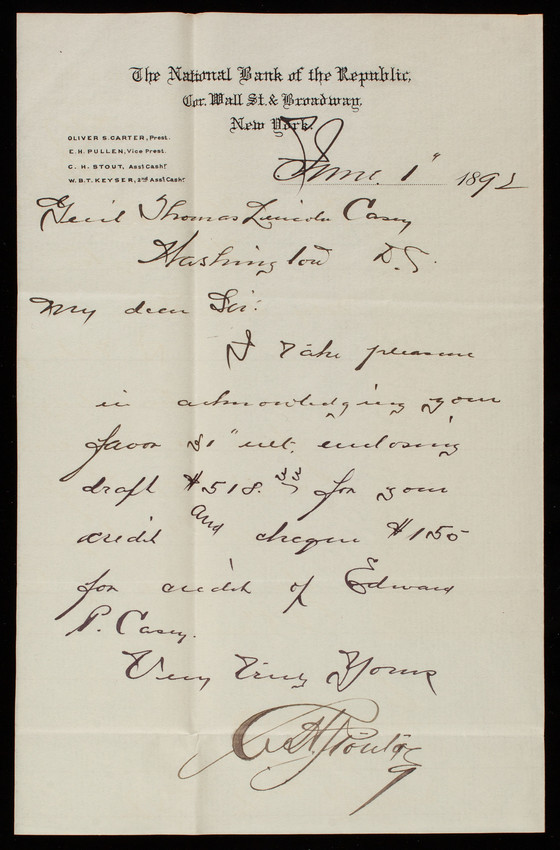 The National Bank of the Republic,
Cor. Wall St. & Broadway.
New York.
OLIVER S. CARTER, Prest.
E. H. PULLEN, Vice Prest.
C. H. STOUT, Asst Cashr
W. B. T. KEYSER, 2nd Asst Cashr
June 1" 1892
Genl Thomas Lincoln Casey
Washington D.C.
My dear Sir:
I take pleasure
in acknowledging your
favor 31" ult. enclosing
draft $518.33 for your
credit and cheque $150
for credit of Edward
P. Casey.
Very Truly Yours
C. H. Stout